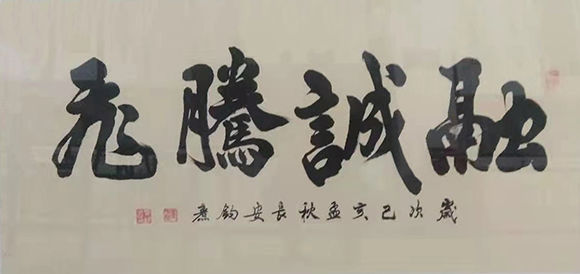 融誠騰飛
歲次己亥孟秋長安鈞